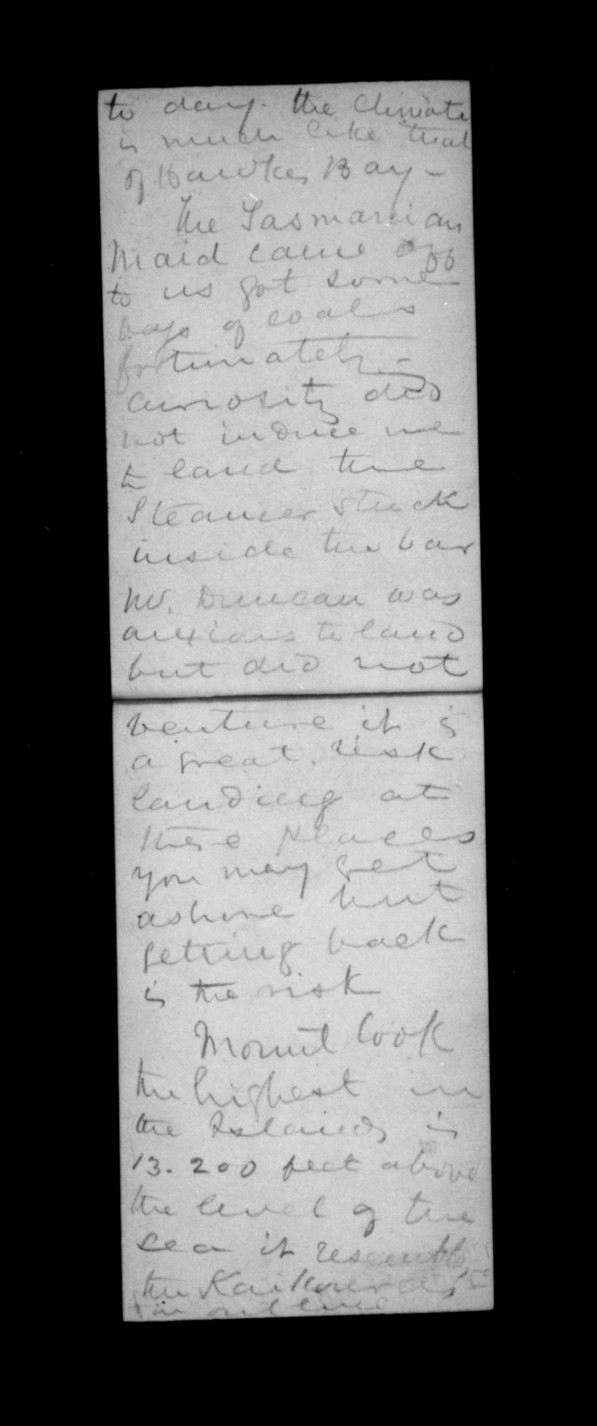 to day. the Climate
is much like that
of Hawkes Bay -
The Tasmanian
Maid came off
to us got some
bags of coals
fortunately -
curiosity did
not induce me
to land the
Steamer stuck
inside the bar
Mr. Duncan was
anxious to land
but did not
venture it is
a great risk
landing at
these places
you may get
ashore but
getting back
is the risk
Mount Cook
the highest in
the Islands is
13.200 feet above
the level of the
sea it resembles
the Kaikouras
in outline